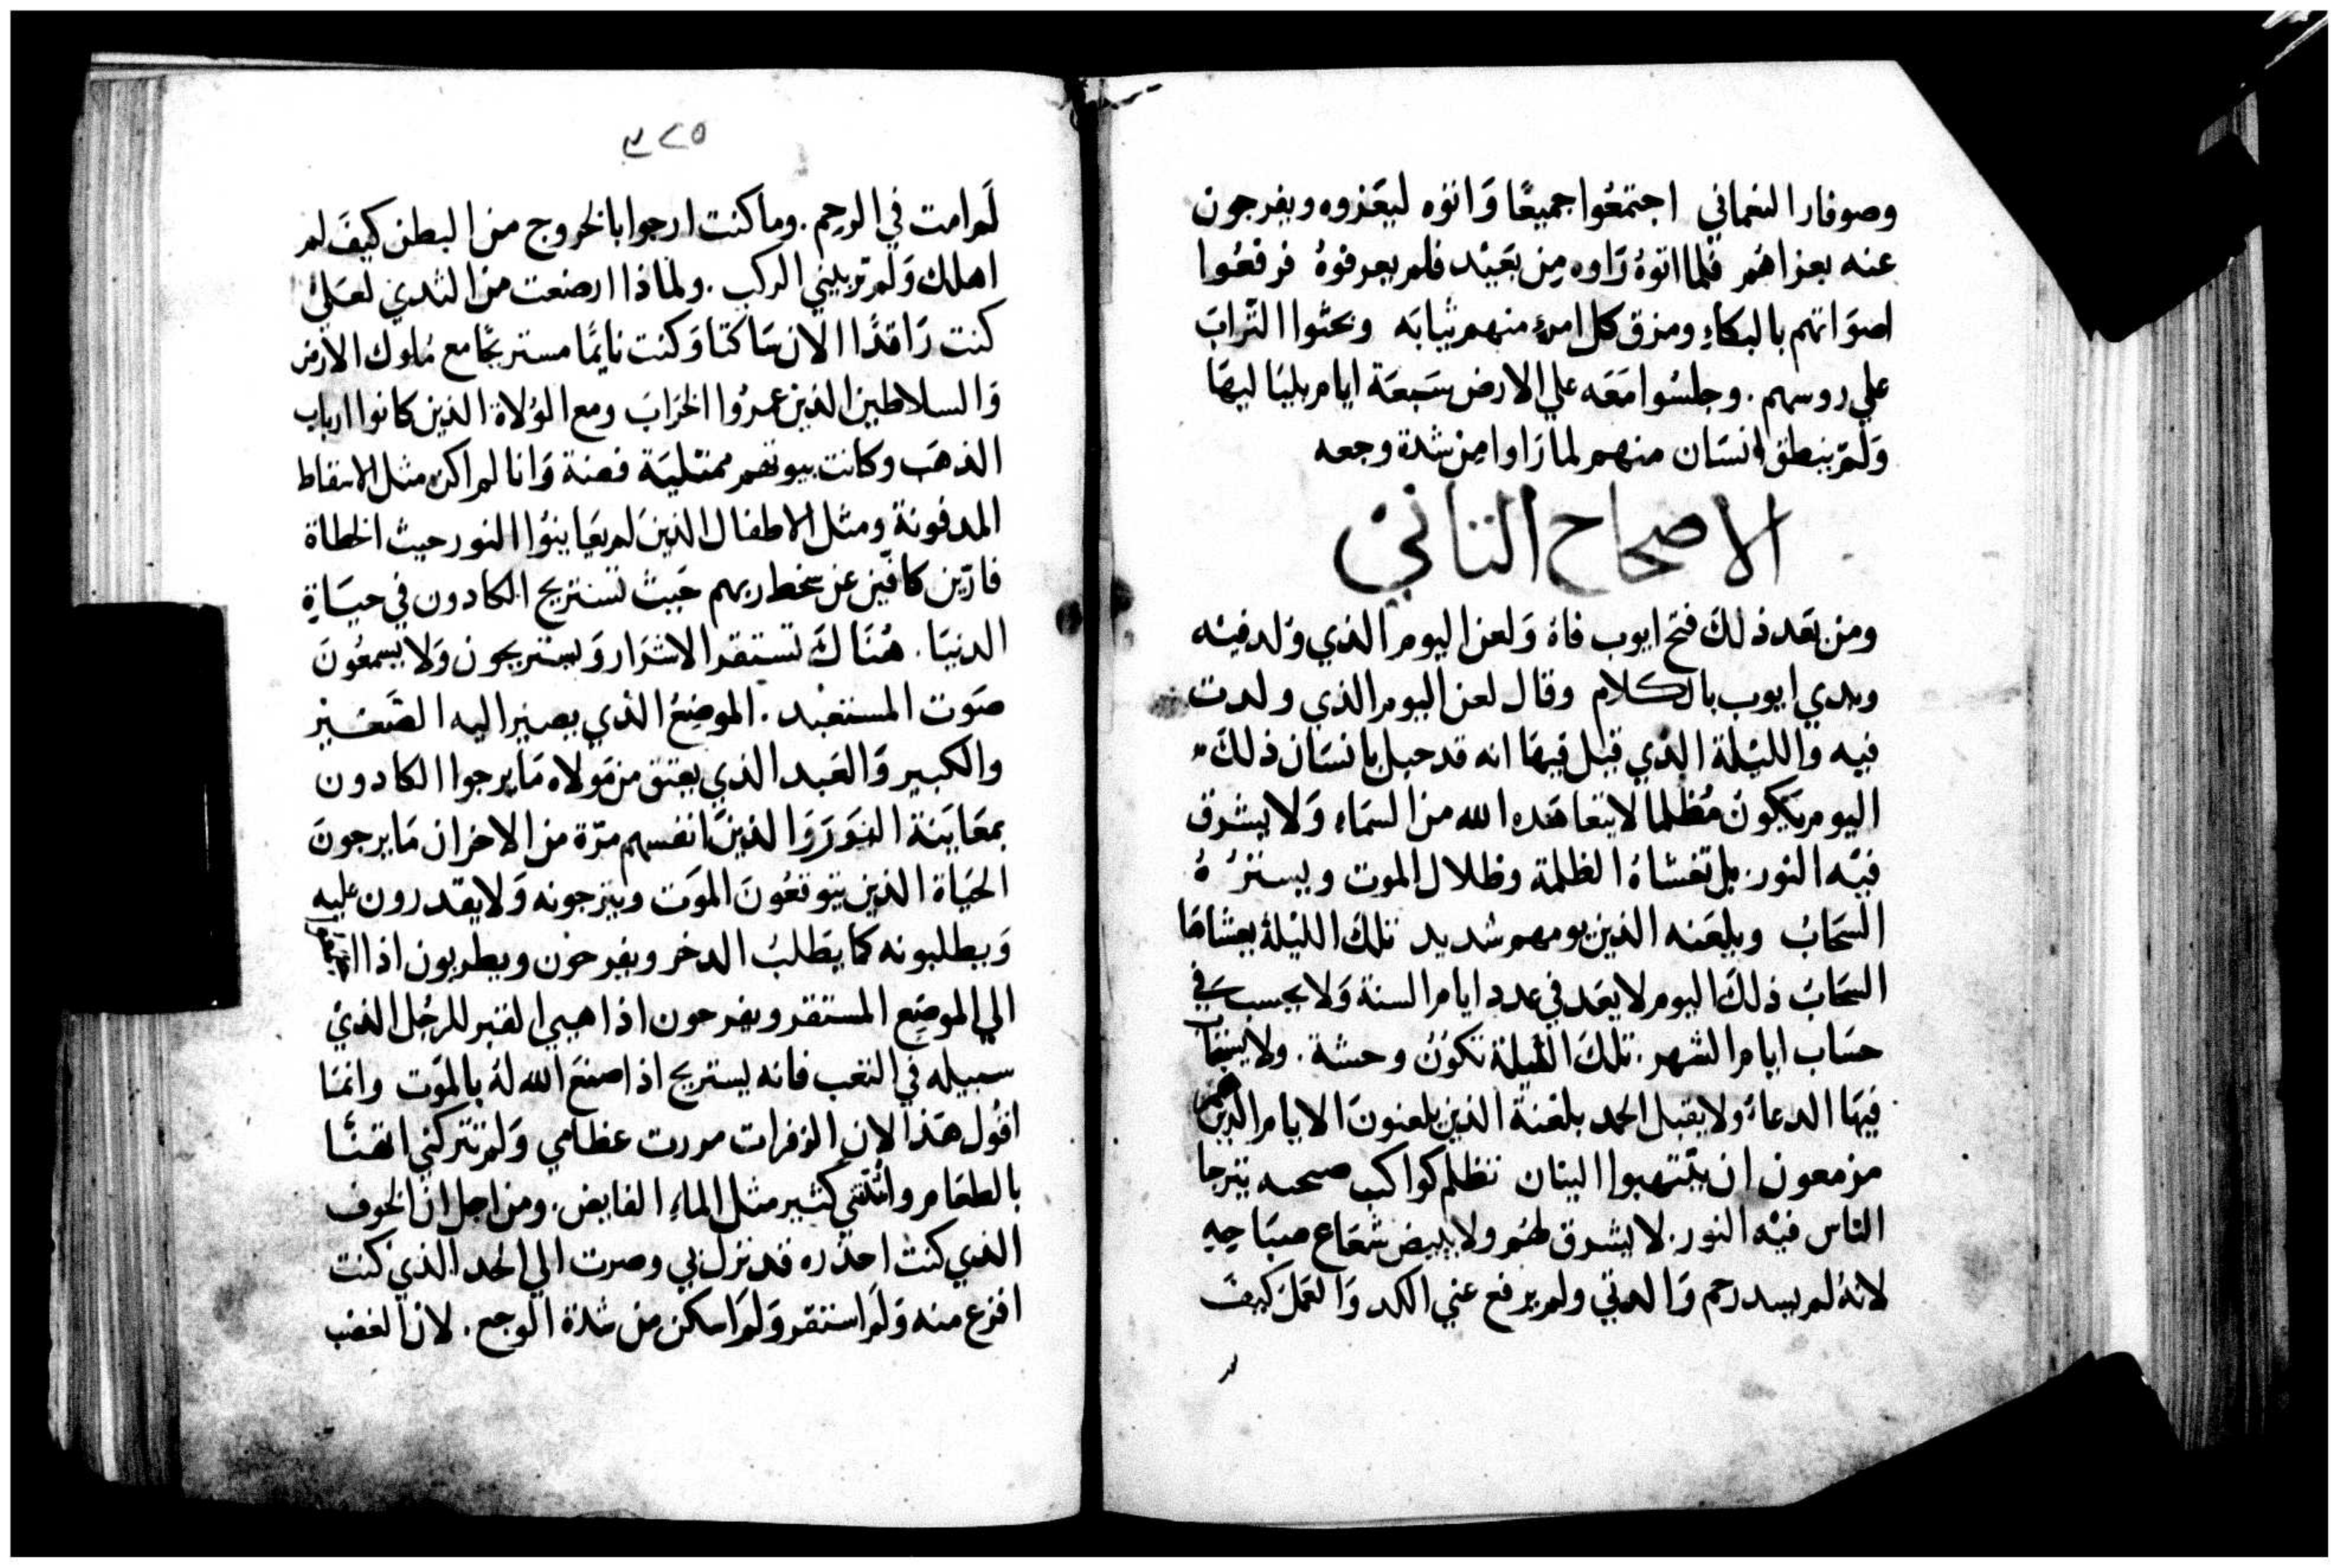 وصوفار النعماني اجتمعُوا جميعًا وَاتوه ليعَزوه ويفرجون
عنه بعزاهُم فلما اتوهُ رَاوه مِن بعَيْد فلم يعرفوهُ فرفعُوا
اصوَاتهم بالبكاءِ ومزق كل امرءٍ منهم ثيابَه وحثوا الترابَ
علي روسهم . وجلسُوا مَعَه علي الارض سَبعَة ايام بليَاليهَا
وَلَم ينطق انسَان منهم لما رَاوا مِن شدة وجعه
الاصحاح الثاني
ومن بَعَد ذلكَ فتح ايوب فاهُ وَلعن اليوم الذي وُلد فيْه
وبدي ايوب بالكلام وقال لعن اليوم الذي ولدت
فيه وَالليْلة الذي قيل فيهَا انه قد حبل بانسَان ذلكَ
اليوم يَكون مُظلما لا يتعاهَده الله من السَماءِ وَلا يشرق
فيْه النور . بل تغشاهُ الظلمة وظلال الموت ويستُرُهُ
السَحَابُ ويلعَنه الذين يومهم شديد تلكَ الليْلة يغشاهَا
السَحَابُ ذلكَ اليوم لا يعَد في عدد ايام السنة وَلا يحسب في
حسَاب ايام الشهر . تلكَ الليلة تكوُن وحشة . ولا يستجَاب
فيهَا الدعاءُ ولا يقبل الحمد بلعْنة الذين يلعنونَ الايام الذين
مزمعون ان ينتهبوا البنان تظلم كواكب صحبه يترجا
الناس فيْه النور . لا يشرق لهُم ولا يبيض شعَاع صبَاحِهِ
لانهُ لم يسد رحم وَالدتي ولم يرفع عني الكد وَالعَمل كيفَ
٣٢٥
لَم امت في الرحِم . وما كنت ارجوا بالخروج من البطن كيفَ لم
اهلك وَلَم تربيني الركب . ولماذا ارضعت من الثدي لعَلي
كنت رَاقدًا الان سَاكتا وَكنت نايمًا مستريحًا مع مُلوك الارض
وَالسلاطين الذين عمرُوا الخرَابَ ومع الوُلاة الذين كانوا ارباب
الذهَب وكانت بيوتهم ممتليَة فضة وَانا لم اكن مثل الاسقاط
المدفونة ومثل الاطفال الذين لم يعَاينوُا النور حيث الخطاة
فارّين كافّين عن سخط ربهم حَيث تستريح الكادون في حيَاةِ
الدنيَا . هُنَاكَ تستقر الاشرَار وَيستريحون وَلا يسمعُونَ
صَوت المستعَبد . الموضِعُ الذي يصير اليه الصَغير
والكبير وَالعَبد الذي يعتق من مَولاه مَا يرجوا الكادون
بمعَاينة النوَر وَالذينَ انفسهم مرّة من الاحزان مَا يرجونَ
الحيَاة الذين يتوقعُونَ الموَت ويترجونه وَلا يقدرون عليه
وَيطلبونه كما يَطلبُ الدخر ويفرحُون ويطربون اذا
الي الموضِع المستقر ويفرحون اذا هيي القبر للرجُل الذيْ
سبيله في التعَب فانه يستريح اذا صنعَ الله لهُ بالمَوت وانما
اقوُل هَذا لان الزفرات مررت عظامي وَلم تتركني اتهنَّا
بالطعَام وانّتي كثير مثل الماءِ الفايض . ومن اجل ان الخوف
الذي كنت احذره قد نزل بي وصرت الي الحد الذي كنت
افزع منه وَلَم استقر وَلَم اسكن من شدة الوجع . لان الغضب